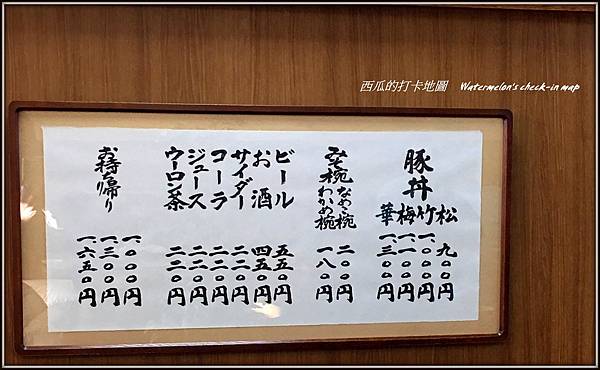 西瓜的打卡地圖 Watermelon's check-in map
豚丼
松 九〇〇円
竹 一、〇〇〇円
梅 一、一〇〇円
華 一、三〇〇円
みそ椀
なめこ椀 二〇〇円
わかめ椀 一八〇円
ビール 五五〇円
お酒 四五〇円
サイダー 二二〇円
コーラ 二二〇円
ジュース 二二〇円
ウーロン茶 二二〇円
お持ち帰り
一、〇〇〇円
一、三〇〇円
一、六五〇円